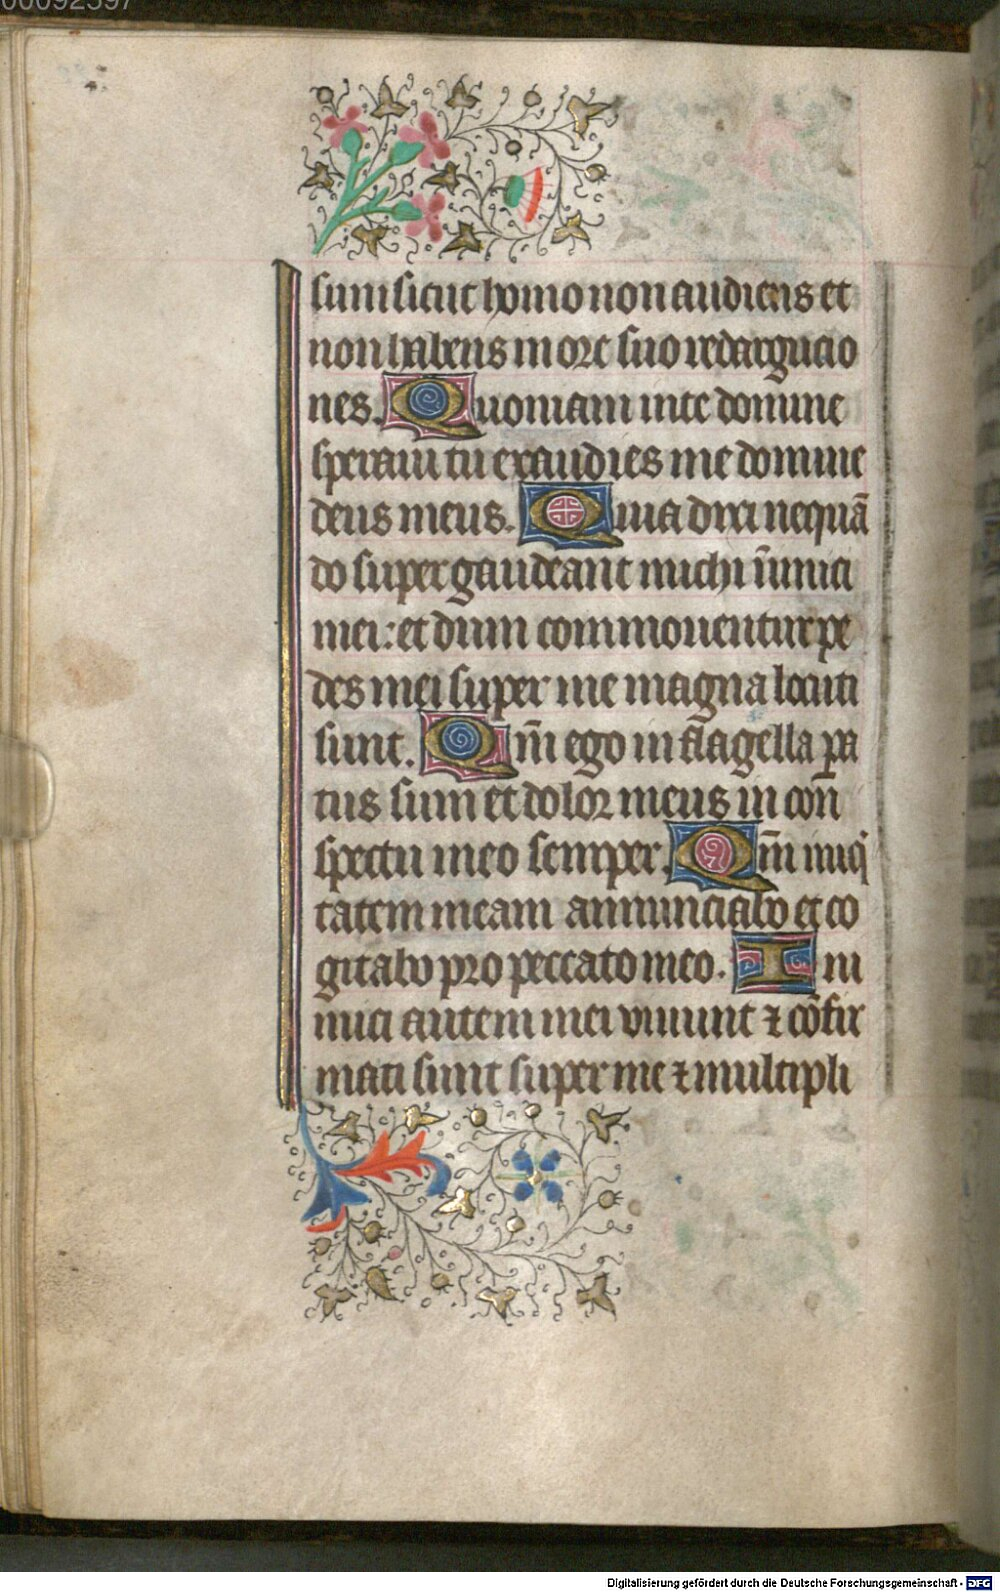 00092597
sum sicut homo non audiens et
non habens in ore suo redargucio
nes. Quoniam in te domine
speraui tu exaudies me domine
deus meus. Quia dixi nequã
do super gaudeant michi inimici
mei: et dum commouentur pe
des mei super me magna locuti
sunt. Qm̃ ego in flagella pa
tus sum et dolor meus in con̄
spectu meo semper. Qm̃ iniq̇
tatem meam annunciabo et co
gitabo pro peccato meo. Ini
mici autem mei viuunt ⁊ cõfir
mati sunt super me ⁊ multipli
Digitalisierung gefördert durch die Deutsche Forschungsgemeinschaft - DFG